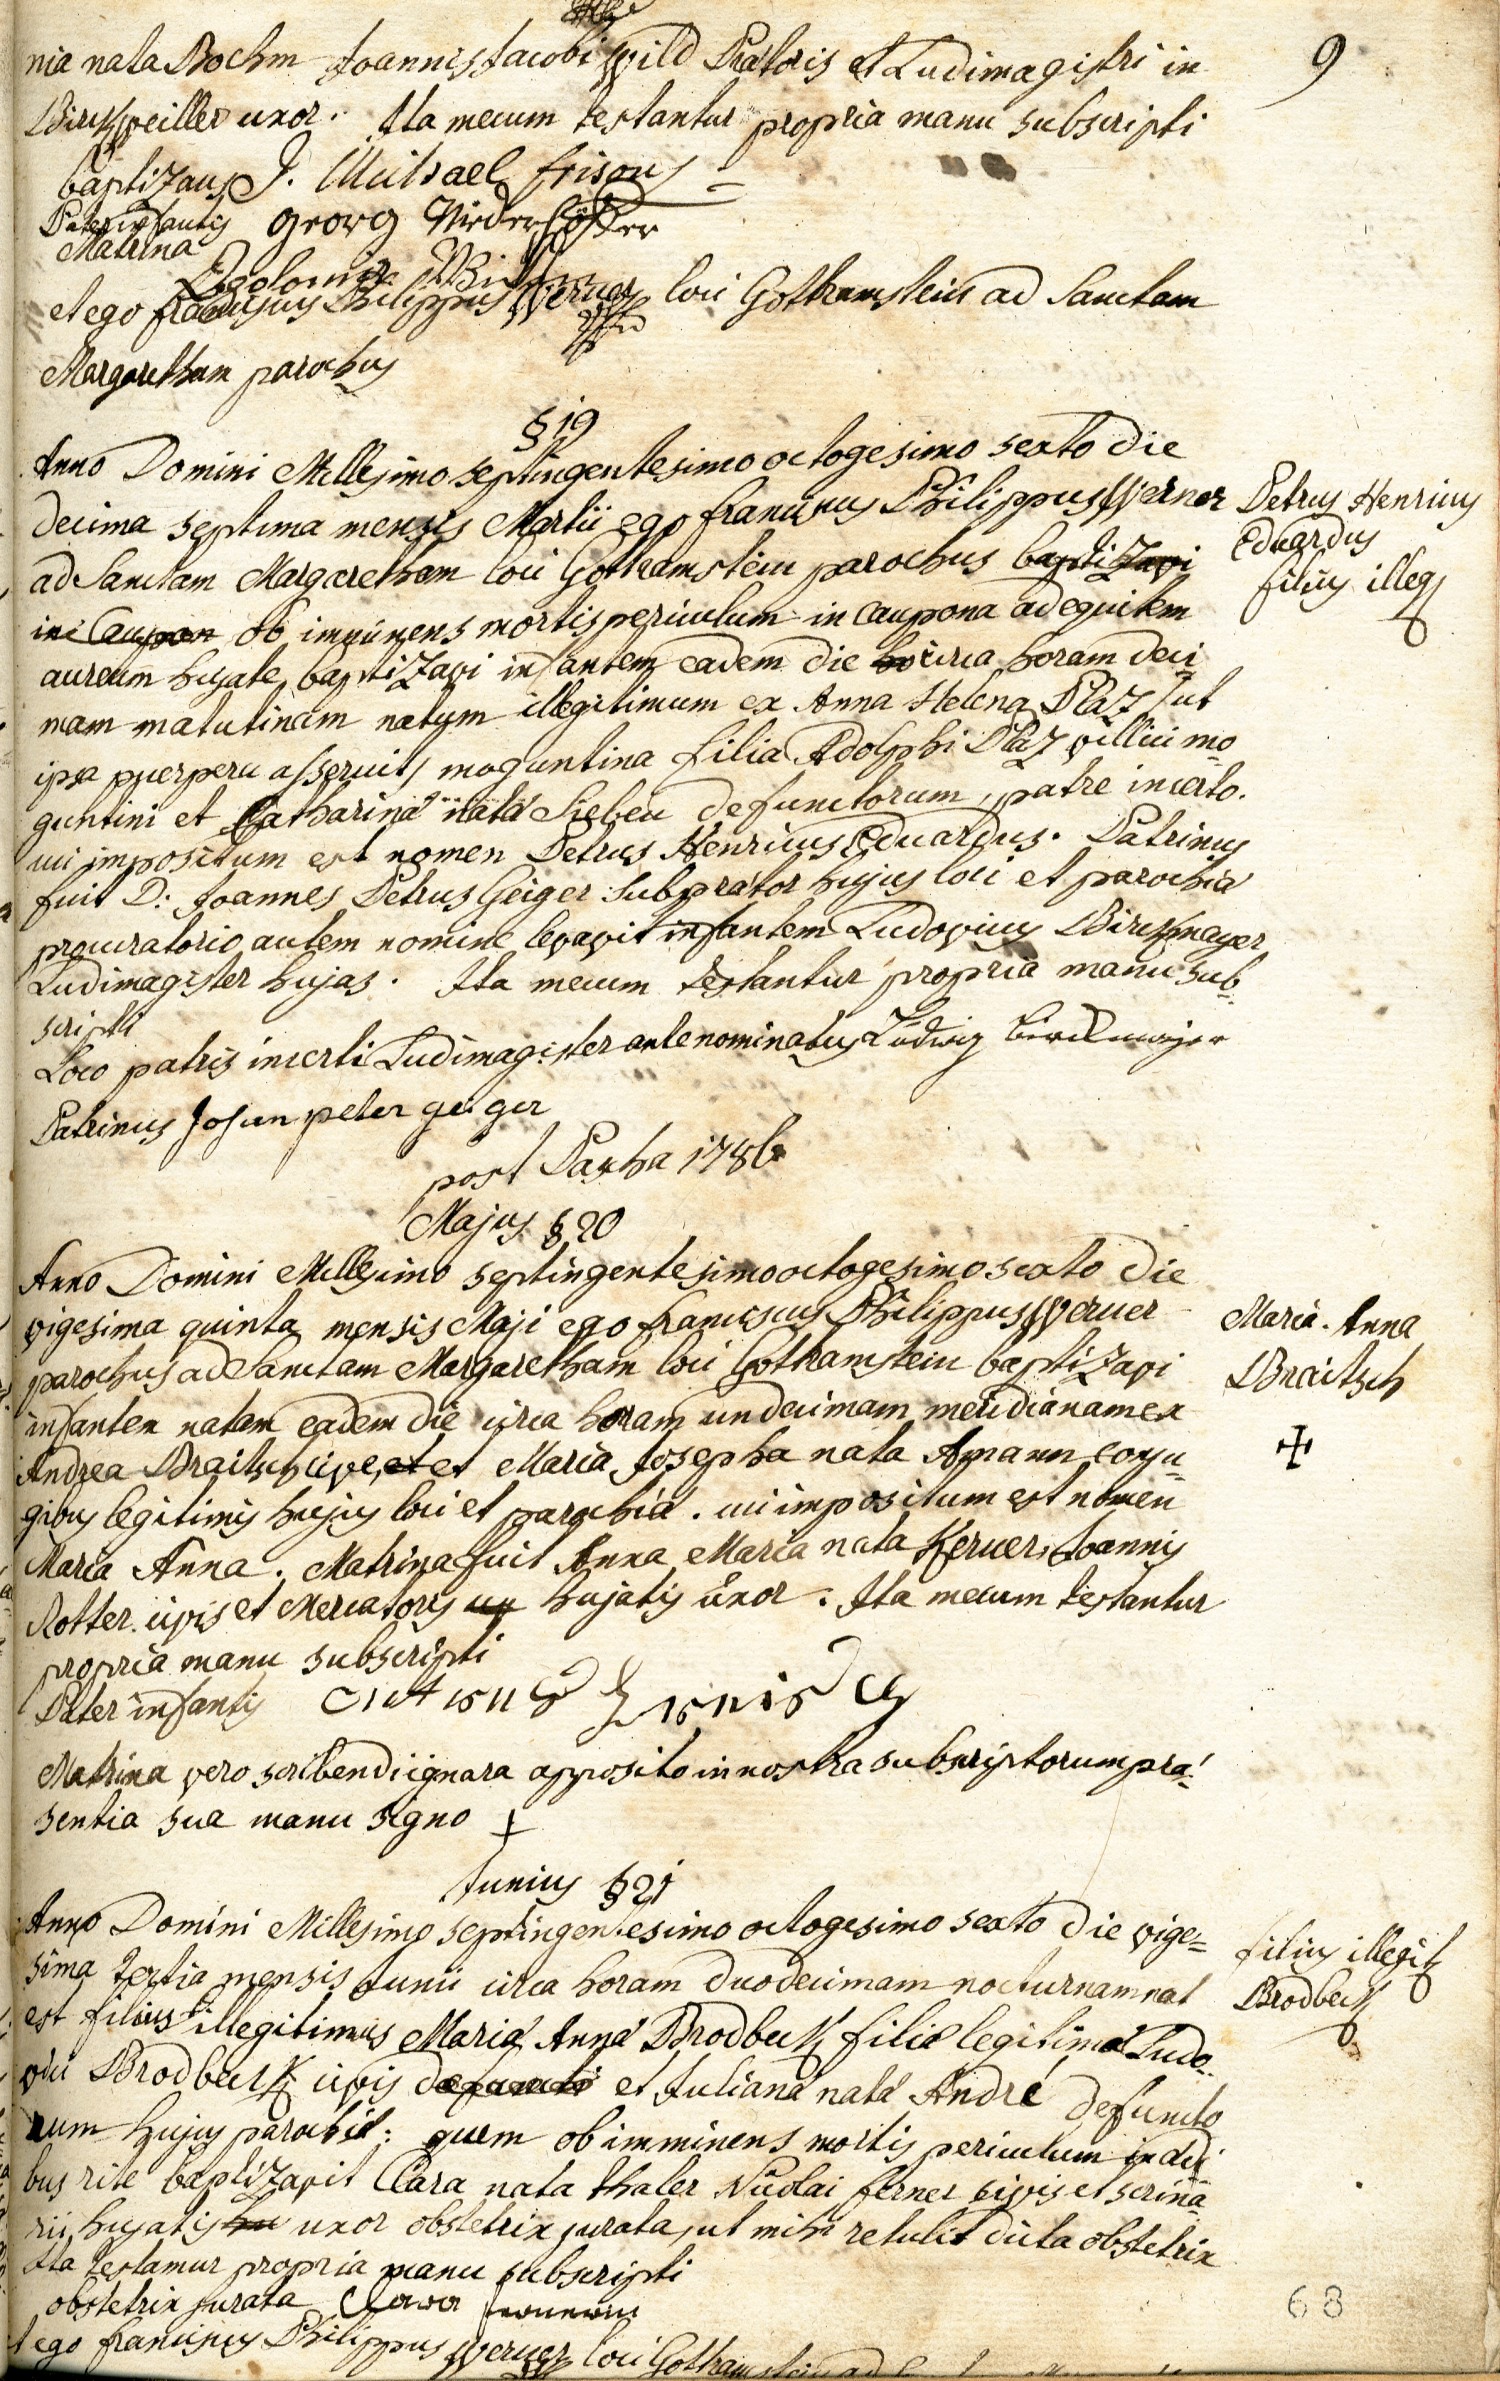 9
nia nata Boehm Joannis Jacobi Wild Prætoris et Ludimagistri in
Birkweiller uxor. Ita mecum testantur propria manu subscripti
baptizans J. Michael frison
Pater infantis georg Niederhöffer
Matrina
et ego franciscus Philippus Werner loci Gothramstein ad Sanctam
Margaretham parochus
§ 19
Anno Domini Millesimo septingentesimo octogesimo sexto die
decima septima mensis Martii ego franciscus Philippus Werner
ad Sanctam Margaretham loci Gothramstein parochus baptizavi
in Caupon ob iminens mortis periculum in caupona ad equitem
aureum hujate, baptizavi infantem eadem die circa horam deci
mam matutinam natum illegitimum ex Anna Helena Plaz /ut
ipsa puerpera asseruit/ moguntina filia Adolphi Plaz villici mo
guntini et Catharinâ natâ Sieben defunctorum, patre incerto.
cui impositum est nomen Petrus Henricus Eduardus. Patrinus
fuit D: Joannes Petrus Geiger Subprætor hujus loci et parochiæ
procuratorio autem nomine levavit infantem Ludovicus Birckmeyer
Ludimagister hujas. Ita mecum testantur propria manu sub=
scripti
Loco patris incerti Ludimagister ante nominatus Ludwig birckmajer
Patrinus Johan peter geiger
Petrus Henricus
Eduardus
filius illeg
post Pascha 1786
Majus § 20
Anno Domini Millesimo septingentesimo octogesimo sexto die
vigesima quinta mensis Maji ego franciscus Philippus Werner
parochus ad Sanctam Margaretham loci Gothramstein baptizavi
infantem natam eadem die circa horam undecimam meridianam ex
Andrea Braitsch cive, et et Maria Josepha nata Amann conju=
gibus legitimis hujus loci et parochiæ. cui impositum est nomen
Maria Anna. Matrina fuit Anna Maria nata Kerner, Joannis
Rotter civis et Mercatoris ux hujatis uxor. Ita mecum testantur
propria manu subscripti
Pater infantis
Matrina vero scribendi ignara apposito in nostra subscriptorum præ=
sentia sua manu signo +
Maria Anna
Braitsch
✠
Junius § 21
Anno Domini Millesimo septingentesimo octogesimo sexto die vige=
sima tertia mensis Junii circa horam duodecimam nocturnam nat
est filius illegitimus Mariæ Annæ Brodbeck filiæ legitimæ Ludo
vici Brodbeck civis defuncti et Julianæ natæ André defuncto
rum hujus parochiæ: quem ob imminens mortis periculum in ædi
bus rite baptizavit Clara nata thaler Nicolai ferner civis et scrina
rii hujatis hu uxor obstetrix jurata, ut mihi retulit dicta obstetrix
Ita testamur propria manu subscripti
obstetrix jurata Clara
et ego franciscus Philippus Werner loci Gothramstein ad
filius illegit
Brodbeck
68